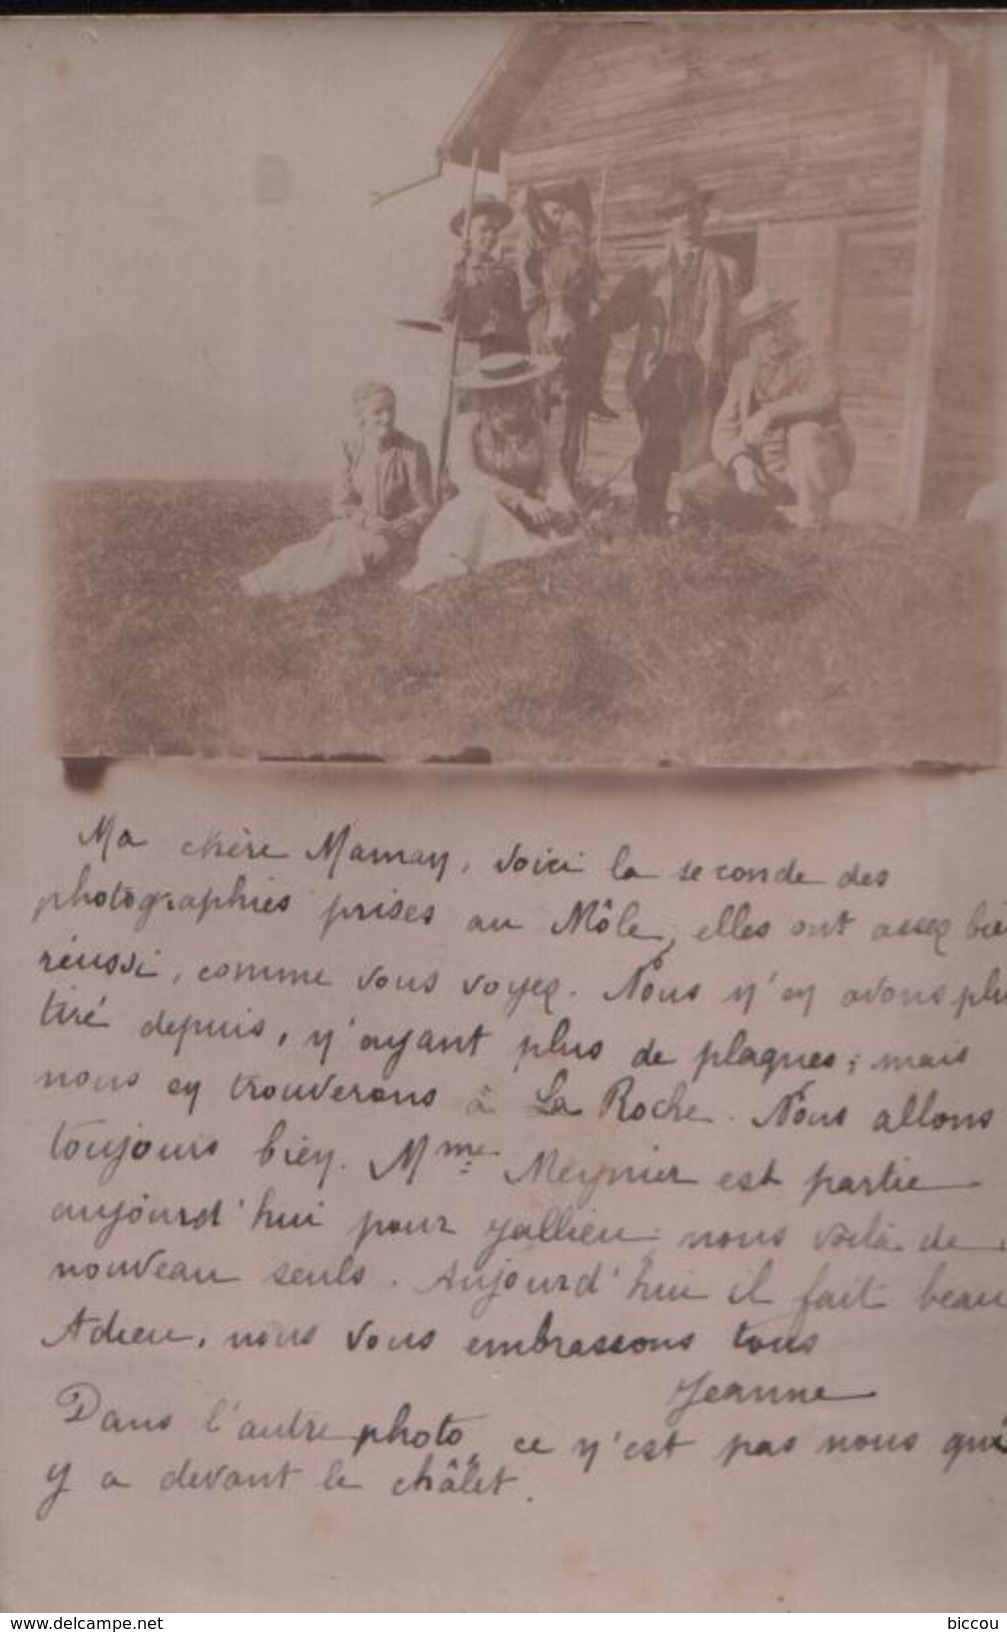 Ma chère Maman, voici la seconde des
photographies prises au Môle, elles ont assez bie
réussi, comme vous voyez. Nous n'en avons plu
tiré depuis, n'ayant plus de plaques ; mais
nous en trouverons à La Roche. Nous allons
toujours bien. Mme Meynier est partie
aujourd'hui pour Jallieu ; nous voilà de
nouveau seuls. Aujourd'hui il fait beau
Adieu, nous vous embrassons tous
Jeanne
Dans l'autre photo, ce n'est pas nous qui
y a devant le châlet.
https://www.delcampe.net
biccou